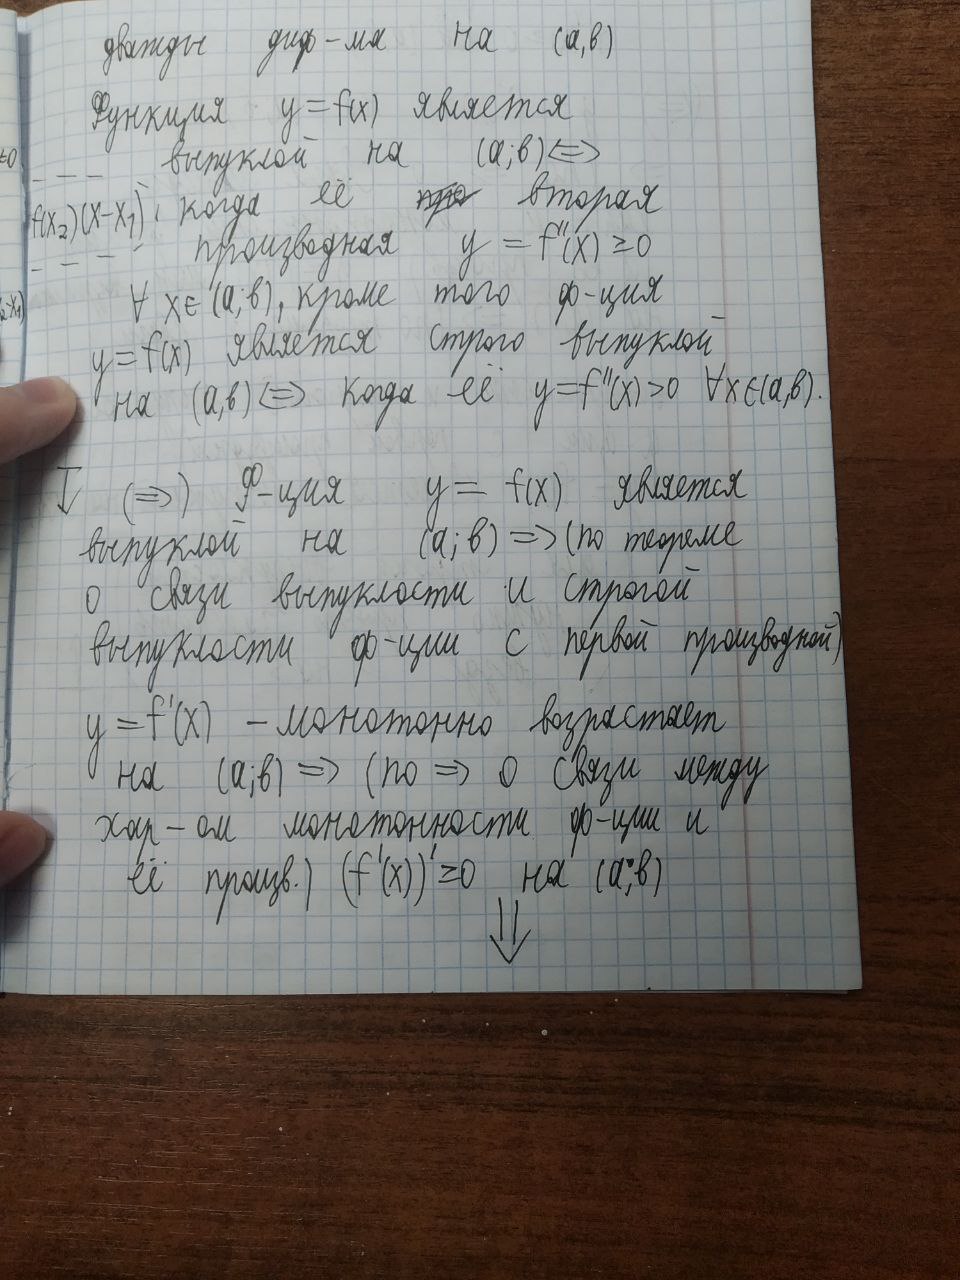 дважды диф-ма на (a,b)
Функция y = f(x) является
выпуклой на (a;b) <=>
f(x₂)(x-x₁) когда её вторая
производная y = f''(x) ≥ 0
∀ x∈(a;b), кроме того ф-ция
y = f(x) является строго выпуклой
на (a,b) <=> когда её y=f''(x)>0 ∀x∈(a,b).
(=>) Ф-ция y = f(x) является
выпуклой на (a;b) => (по теореме
о связи выпуклости и строгой
выпуклости ф-ции с первой производной)
y = f'(x) - монотонно возрастает
на (a;b) => (по => о связи между
хар-ом монотонности ф-ции и
её произв.) (f'(x))' ≥0 на (a;b)